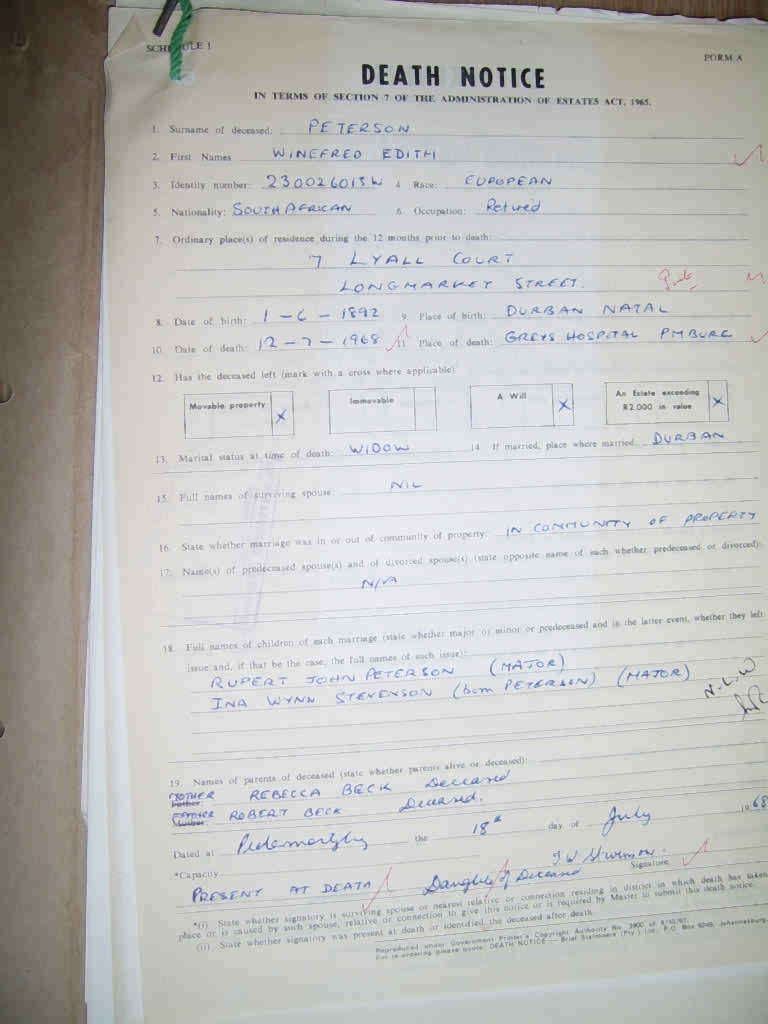 SCHEDULE 1
FORM A
DEATH NOTICE
IN TERMS OF SECTION 7 OF THE ADMINISTRATION OF ESTATES ACT, 1965.
1. Surname of deceased: PETERSON
2. First Names WINEFRED EDITH
3. Identity number: 230026013W 4. Race: EUROPEAN
5. Nationality: SOUTH AFRICAN 6. Occupation: Retired
7. Ordinary place(s) of residence during the 12 months prior to death:
7 LYALL COURT
LONGMARKET STREET.
8. Date of birth: 1-6-1892 9. Place of birth: DURBAN NATAL
10. Date of death: 12-7-1968 11. Place of death: GREYS HOSPITAL PMBURG
12. Has the deceased left (mark with a cross where applicable)
Movable property X Immovable A Will X An Estate exceeding R2.000 in value X
13. Marital status at time of death: WIDOW 14. If married, place where married. DURBAN
15. Full names of surviving spouse: NIL
16. State whether marriage was in or out of community of property: IN COMMUNITY OF PROPERTY
17. Name(s) of predeceased spouse(s) and of divorced spouse(s) (state opposite name of each whether predeceased or divorced):
N/A
18. Full names of children of each marriage (state whether major or minor or predeceased and in the latter event, whether they left
issue and, if that be the case, the full names of such issue):
RUPERT JOHN PETERSON (MAJOR)
INA WYNN STEVENSON (born PETERSON) (MAJOR)
N.L.W
19. Names of parents of deceased (state whether parents alive or deceased):
MOTHER Father: REBECCA BECK Deceased
FATHER Mother: ROBERT BECK Deceased.
Dated at the 18th day of July 1968
*Capacity Signature
PRESENT AT DEATH Daughter of Deceased
*(i) State whether signatory is surviving spouse or nearest relative or connection residing in district in which death has taken
place or is caused by such spouse, relative or connection to give this notice or is required by Master to submit this death notice.
(ii) State whether signatory was present at death or identified the deceased after death.
Reproduced under Government Printer's Copyright Authority No. 3900 of 9/10/67.
For re-ordering please quote: DEATH NOTICE — Brief Stationers (Pty.) Ltd., P.O. Box 6249, Johannesburg.